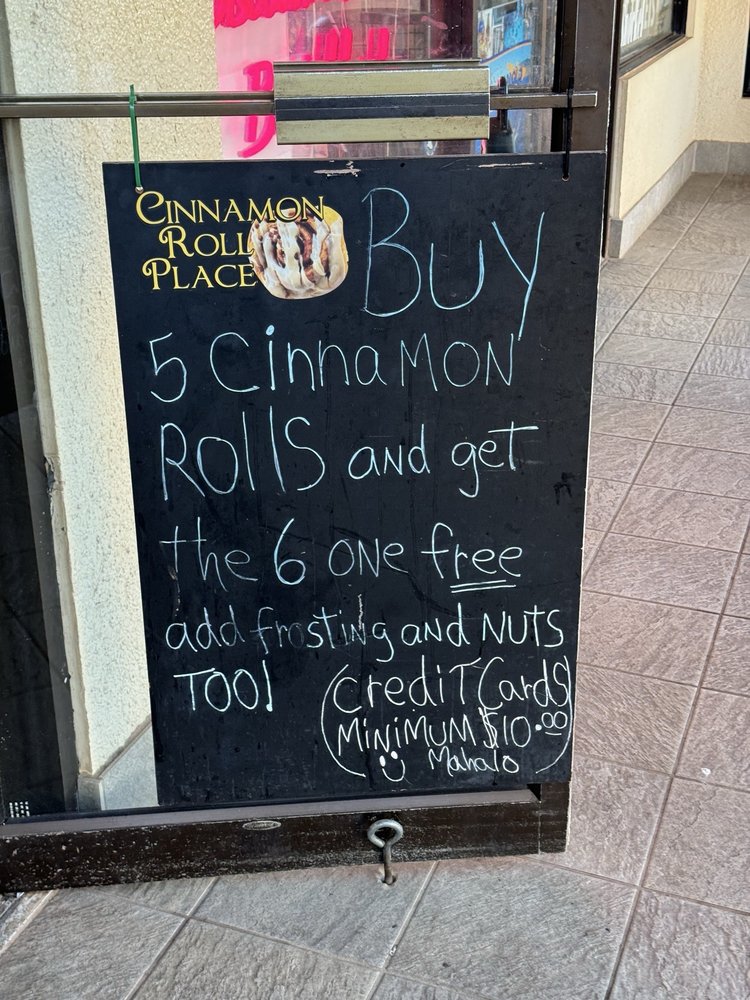 CINNAMON
ROLL
PLACE
BUY
5 CinnaMON
ROllS and get
the 6 ONE free
add frosting and NUTS
TOO!
(CrediT Cards
MiNiMUM $10.00
Mahalo